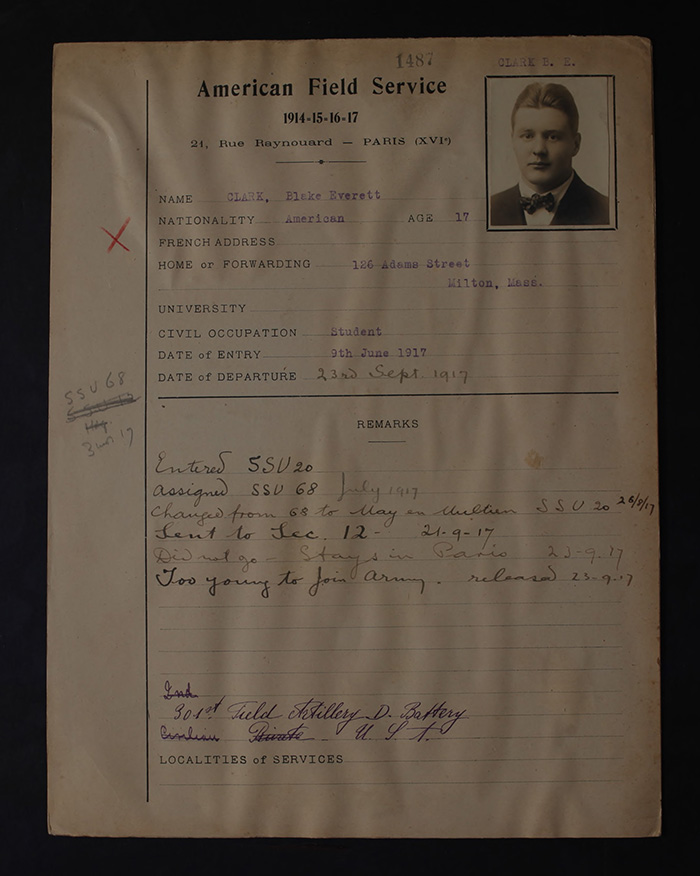 1487
CLARK B. E.
American Field Service
1914-15-16-17
21, Rue Raynouard — PARIS (XVIe)
NAME CLARK, Blake Everett
NATIONALITY American AGE 17
FRENCH ADDRESS
HOME or FORWARDING 126 Adams Street
Milton, Mass.
UNIVERSITY
CIVIL OCCUPATION Student
DATE of ENTRY 9th June 1917
DATE of DEPARTURE 23rd Sept. 1917
SSU 68
17
REMARKS
Entered SSU 20
Assigned SSU 68 July 1917
Changed from 68 to May en Multien SSU 20 26/8/17
Sent to Sec. 12 - 21-9-17
Did not go - Stays in Paris 23-9-17
Too young to join Army. released 23-9-17
301st Field Artillery D. Battery
Private U. S. A.
LOCALITIES of SERVICES